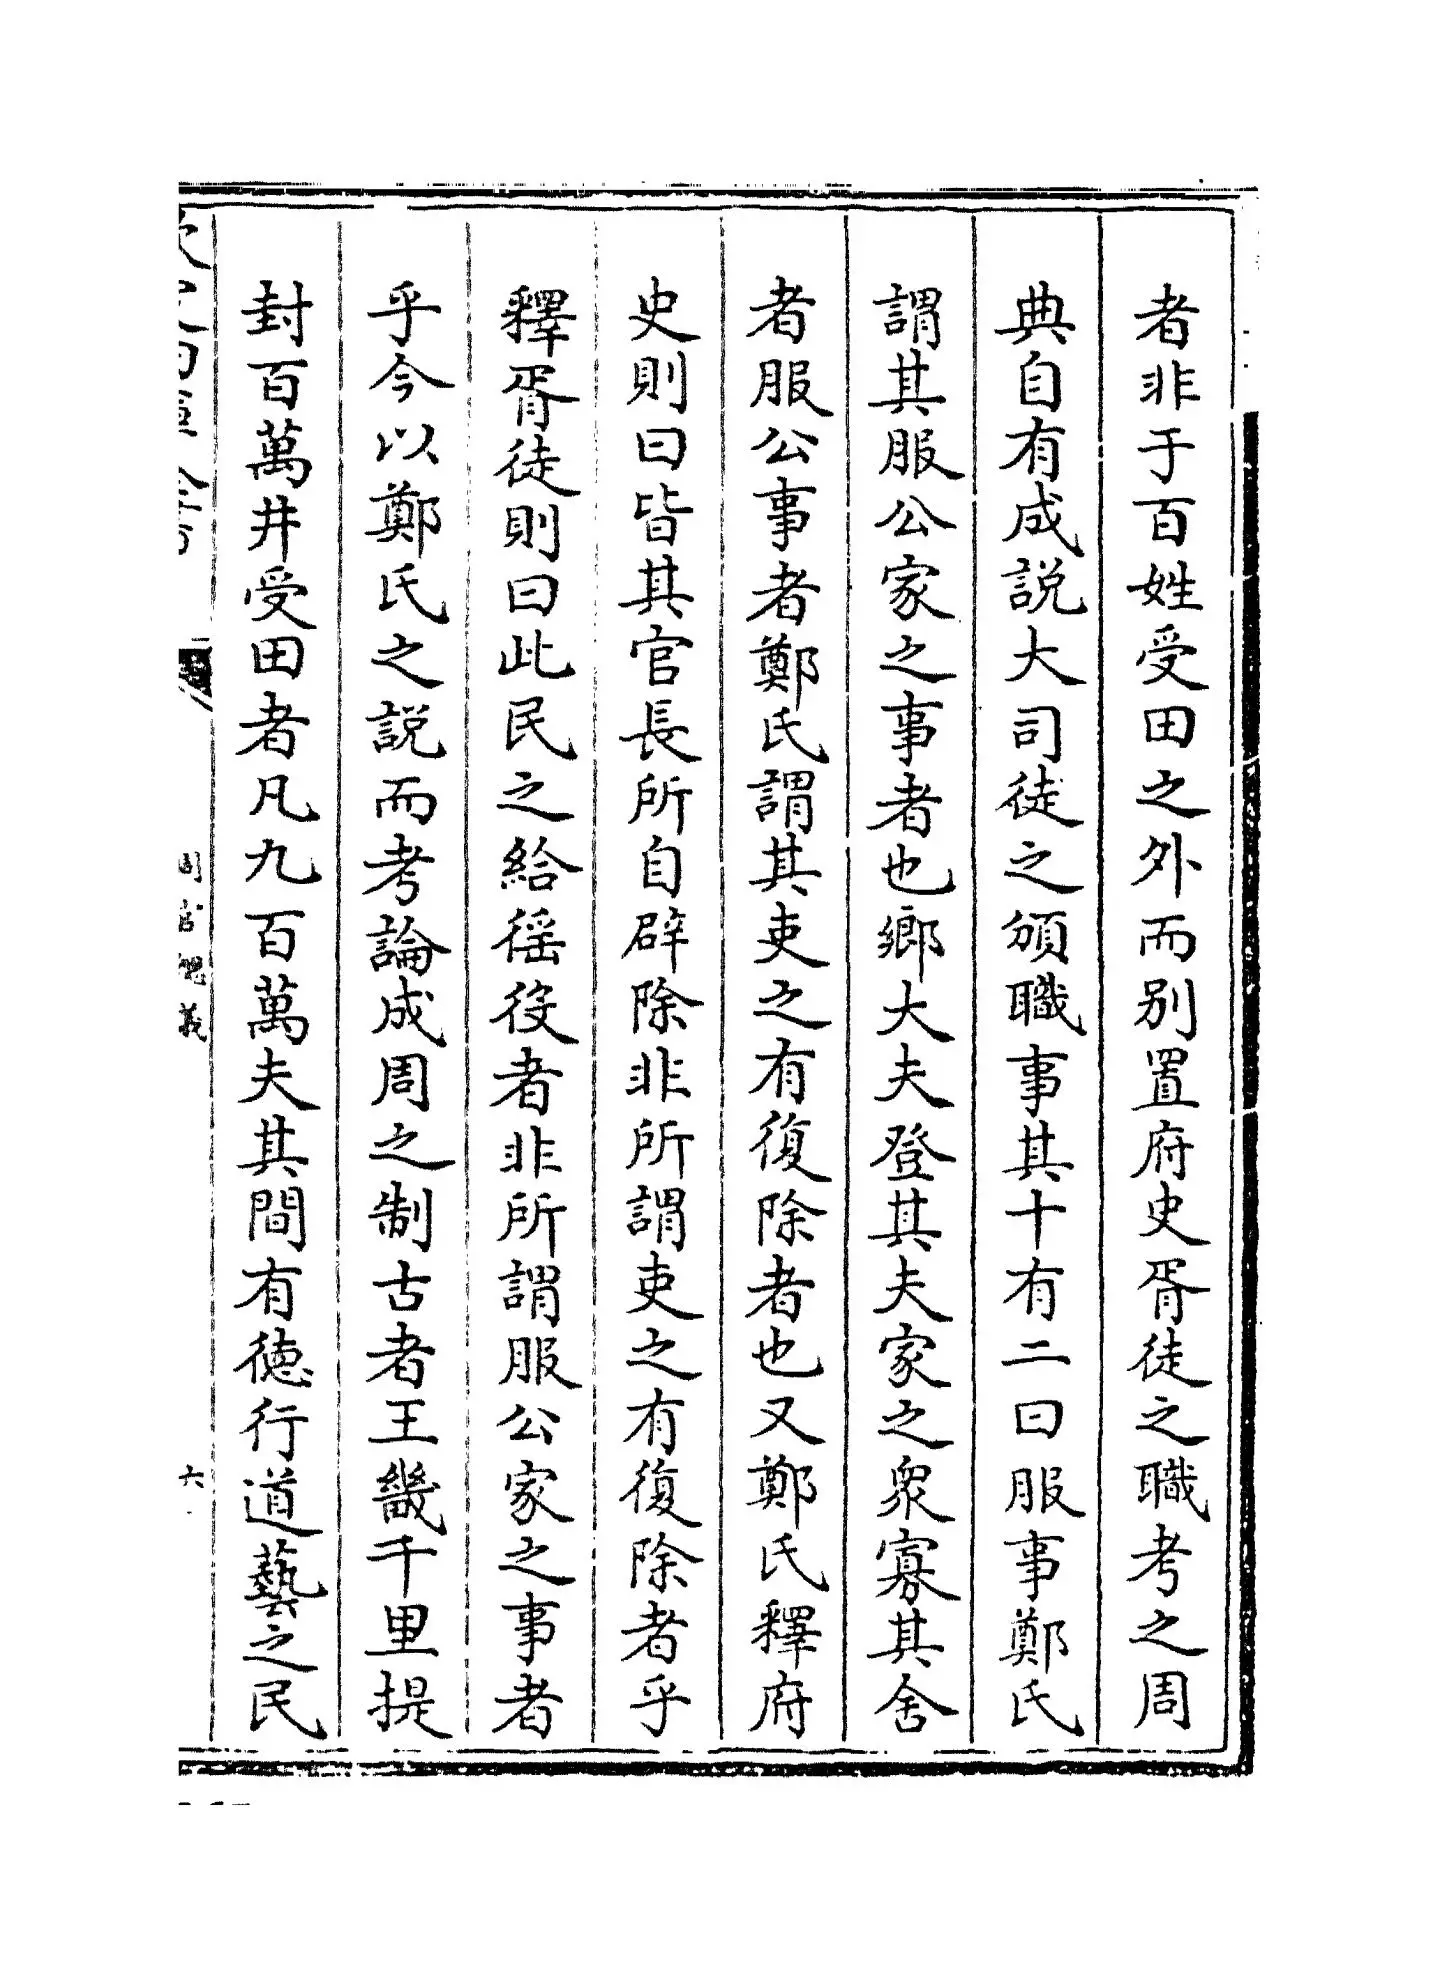 者非于百姓受田之外而别置府史胥徒之職考之周
典自有成説大司徒之頒職事其十有二曰服事鄭氏
謂其服公家之事者也鄉大夫登其夫家之衆寡其舍
者服公事者鄭氏謂其吏之有復除者也又鄭氏釋府
史則曰皆其官長所自辟除非所謂吏之有復除者乎
釋胥徒則曰此民之給徭役者非所謂服公家之事者
乎今以鄭氏之説而考論成周之制古者王畿千里提
封百萬井受田者凡九百萬夫其間有徳行道藝之民
周官總義
六